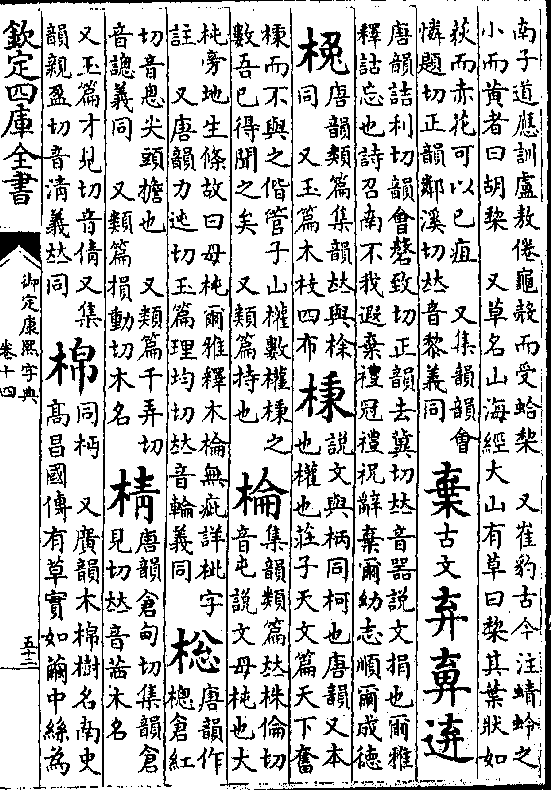 南子道應訓盧敖倦龜殻而受蛤棃　又崔豹古今注蜻蛉之
小而黃者曰胡棃　又草名山海經大山有草曰棃其葉狀如
荻而赤花可以已疽　又集韻韻會
憐題切正韻鄰溪切𠀤音黎義同
棄古文弃
唐韻詰利切韻會磬致切正韻去冀切𠀤音器說文捐也爾雅
釋詁忘也詩召南不我遐棄禮冠禮祝辭棄爾幼志順爾成德
唐韻類篇集韻𠀤與
同　又玉篇木枝四布
棅
說文與柄同柯也唐韻又本
也權也莊子天文篇天下奮
棅而不與之偕管子山權數權棅之
數吾已得聞之矣　又類篇持也
棆
集韻類篇𠀤株倫切
音屯說文母杶也大
杶旁地生條故曰母杶爾雅釋木棆無疵詳枇字
註　又唐韻力迍切玉篇理均切𠀤音輪義同
棇
唐韻作
樬倉紅
切音悤尖頭擔也　又類篇千弄切
音謥義同　又類篇損動切木名
棈
唐韻倉甸切集韻倉
見切𠀤音茜木名
又玉篇才見切音倩又集
韻親盈切音淸義𠀤同
棉
同㭌　又廣韻木棉樹名南史
高昌國傳有草實如繭中絲為
欽定四庫全書
御定康熙字典
卷十四
五十二